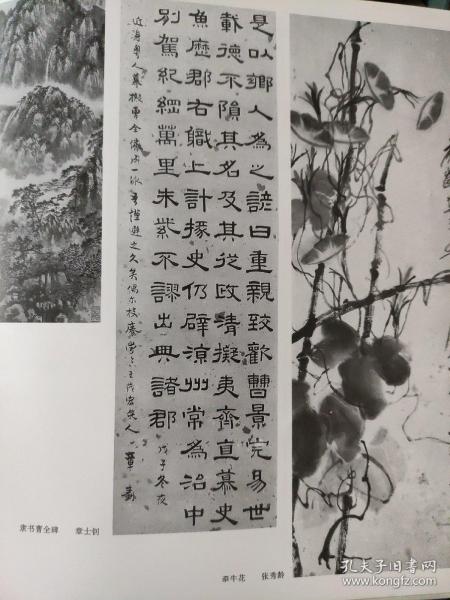 是以鄉人為之諺曰重親致歡曹景完易世
載德不隕其名及其從政清擬夷齊直慕史
魚歷郡右職上計掾史仍辟涼州常為治中
別駕紀綱萬里朱紫不謬出典諸郡 戊子冬夜
隶书曹全碑 章士钊
牵牛花 张秀龄
孔夫子旧书网